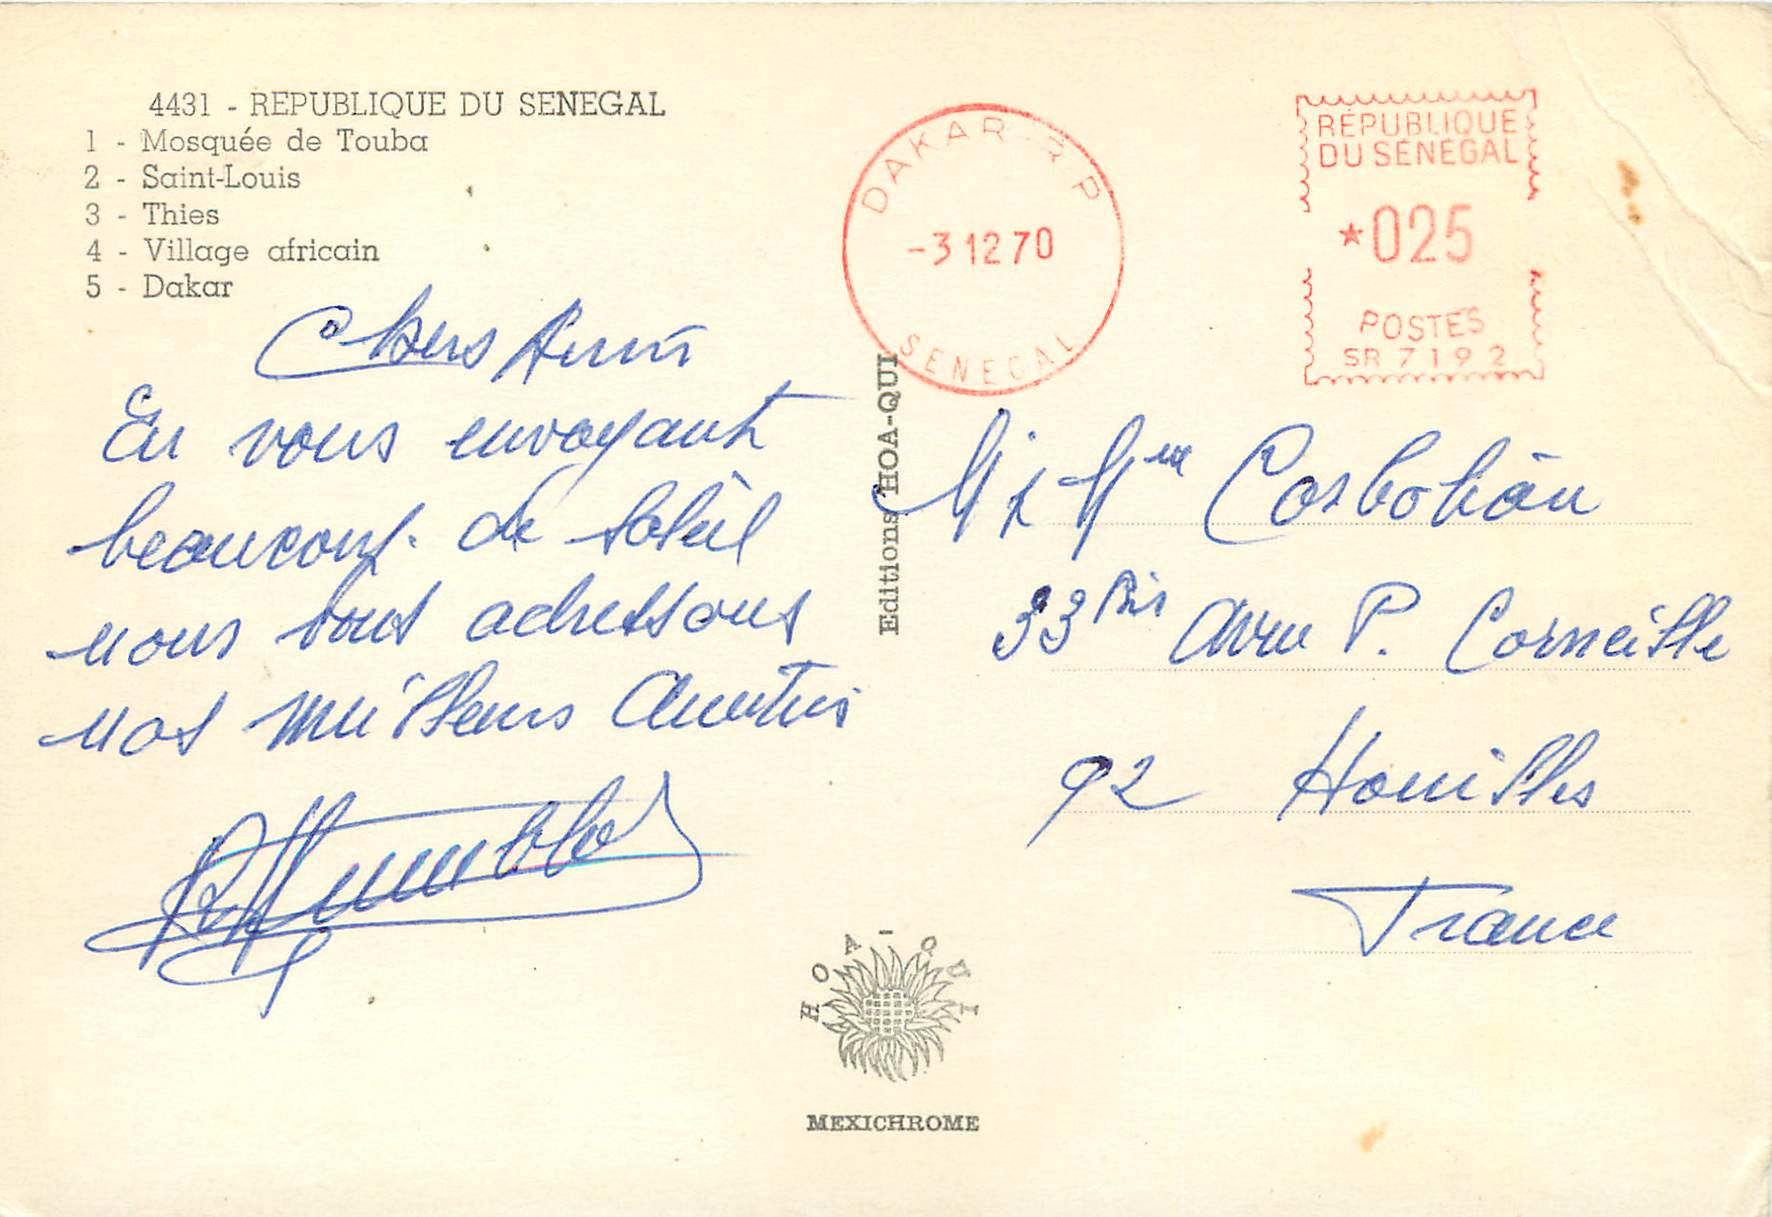 4431 - REPUBLIQUE DU SENEGAL
1 - Mosquée de Touba
2 - Saint-Louis
3 - Thies
4 - Village africain
5 - Dakar
Chers Amis
En vous envoyant
beaucoup de soleil
nous vous adressons
nos meilleurs Amitiés
DAKAR-RP
-3 12 70
SENEGAL
RÉPUBLIQUE
DU SÉNÉGAL
*025
POSTES
SR 7192
Editions HOA-QUI
M & Mme
33 bis Avnue P. Corneille
92 Houilles
France
HOA-QUI
MEXICHROME